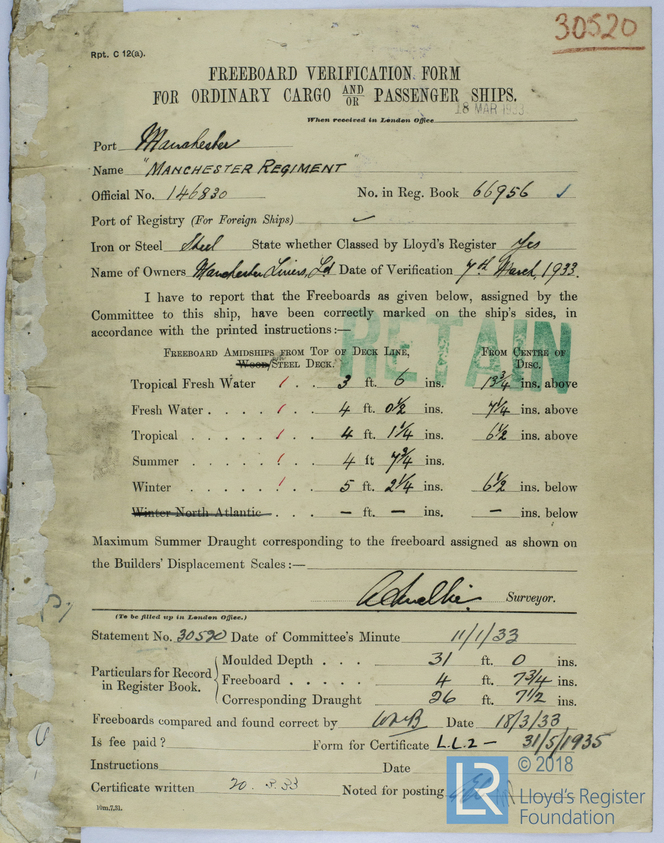 30520
Rpt. C 12(a).
FREEBOARD VERIFICATION FORM
FOR ORDINARY CARGO AND/OR PASSENGER SHIPS.
When received in London Office 18 MAR 1933
Port Manchester
Name "MANCHESTER REGIMENT"
Official No. 146830 No. in Reg. Book 66956 ✓
Port of Registry (For Foreign Ships) ✓
Iron or Steel Steel State whether Classed by Lloyd's Register Yes
Name of Owners Manchester Liners, Ld Date of Verification 7th March, 1933.
I have to report that the Freeboards as given below, assigned by the
Committee to this ship, have been correctly marked on the ship's sides, in
accordance with the printed instructions:—
RETAIN
FREEBOARD AMIDSHIPS FROM TOP OF DECK LINE, FROM CENTRE OF
WOOD/STEEL DECK. DISC.
Tropical Fresh Water 3 ft. 6 ins. 13 3/4 ins. above
Fresh Water . . . . 4 ft. 0 1/2 ins. 7 1/4 ins. above
Tropical . . . . . 4 ft. 1 1/4 ins. 6 1/2 ins. above
Summer . . . . . 4 ft 7 3/4 ins.
Winter . . . . . 5 ft. 2 1/4 ins. 6 1/2 ins. below
Winter North Atlantic . . . — ft. — ins. — ins. below
Maximum Summer Draught corresponding to the freeboard assigned as shown on
the Builders' Displacement Scales:—
Surveyor.
(To be filled up in London Office.)
Statement No. 30520 Date of Committee's Minute 11/1/33
Particulars for Record in Register Book.
Moulded Depth . . . 31 ft. 0 ins.
Freeboard . . . . . 4 ft. 7 3/4 ins.
Corresponding Draught 26 ft. 7 1/2 ins.
Freeboards compared and found correct by Date 18/3/33
Is fee paid? Form for Certificate L.L.2 — 31/5/1935
Instructions Date
Certificate written 20.3.33 Noted for posting
10m,7,31.
LR © 2018
Lloyd's Register
Foundation